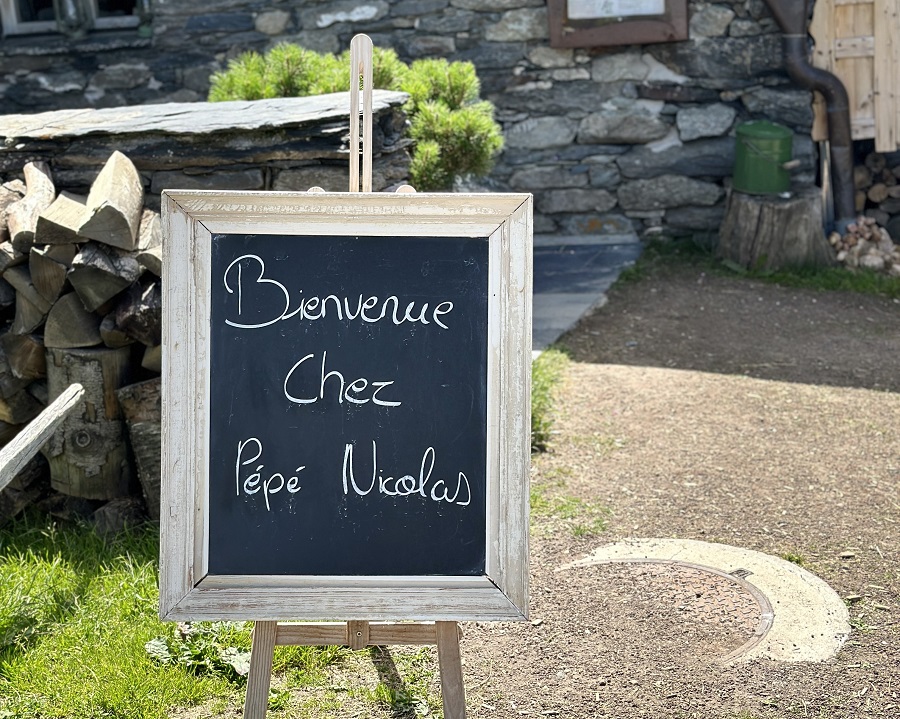 Bienvenue
Chez
Pépé Nicolas